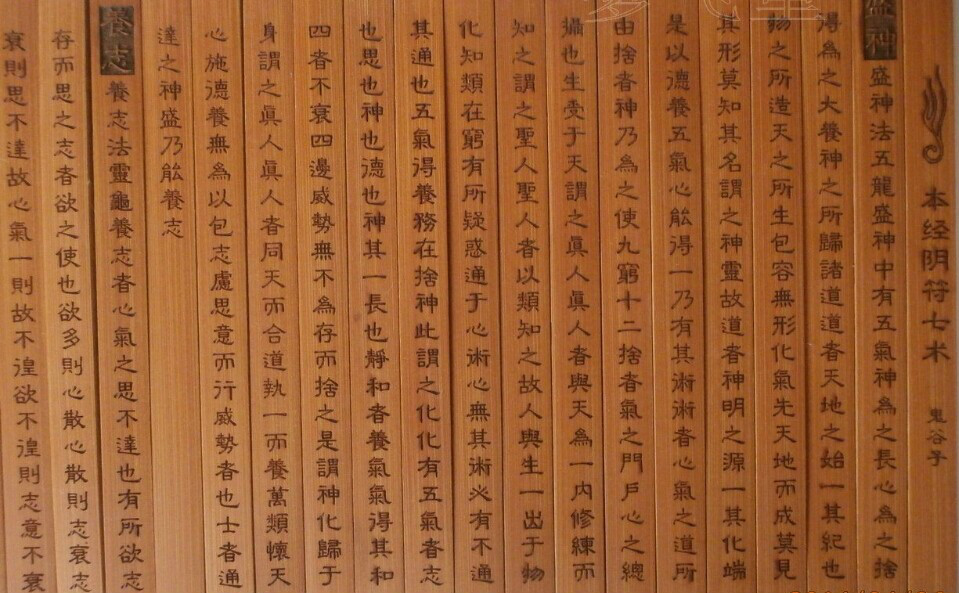 本经阴符七术 鬼谷子
盛神 盛神法五龍盛神中有五氣神為之長心為之捨
得為之大養神之所歸諸道道者天地之始一其紀也
物之所造天之所生包容無形化氣先天地而成莫見
其形莫知其名謂之神靈故道者神明之源一其化端
是以德養五氣心能得一乃有其術術者心氣之道所
由捨者神乃為之使九窮十二捨者氣之門戶心之總
攝也生受于天謂之眞人眞人者與天為一內修練而
知之謂之聖人聖人者以類知之故人與生一出于物
化知類在窮有所疑惑通于心術心無其術必有不通
其通也五氣得養務在捨神此謂之化化有五氣者志
也思也神也德也神其一長也靜和者養氣氣得其和
四者不衰四邊威勢無不為存而捨之是謂神化歸于
身謂之眞人眞人者同天而合道執一而養萬類懷天
心施德養無為以包志慮思意而行威勢者也士者通
達之神盛乃能養志
養志 養志法靈龜養志者心氣之思不達也有所欲志
存而思之志者欲之使也欲多則心散心散則志衰志
衰則思不達故心氣一則故不徨欲不徨則志意不衰